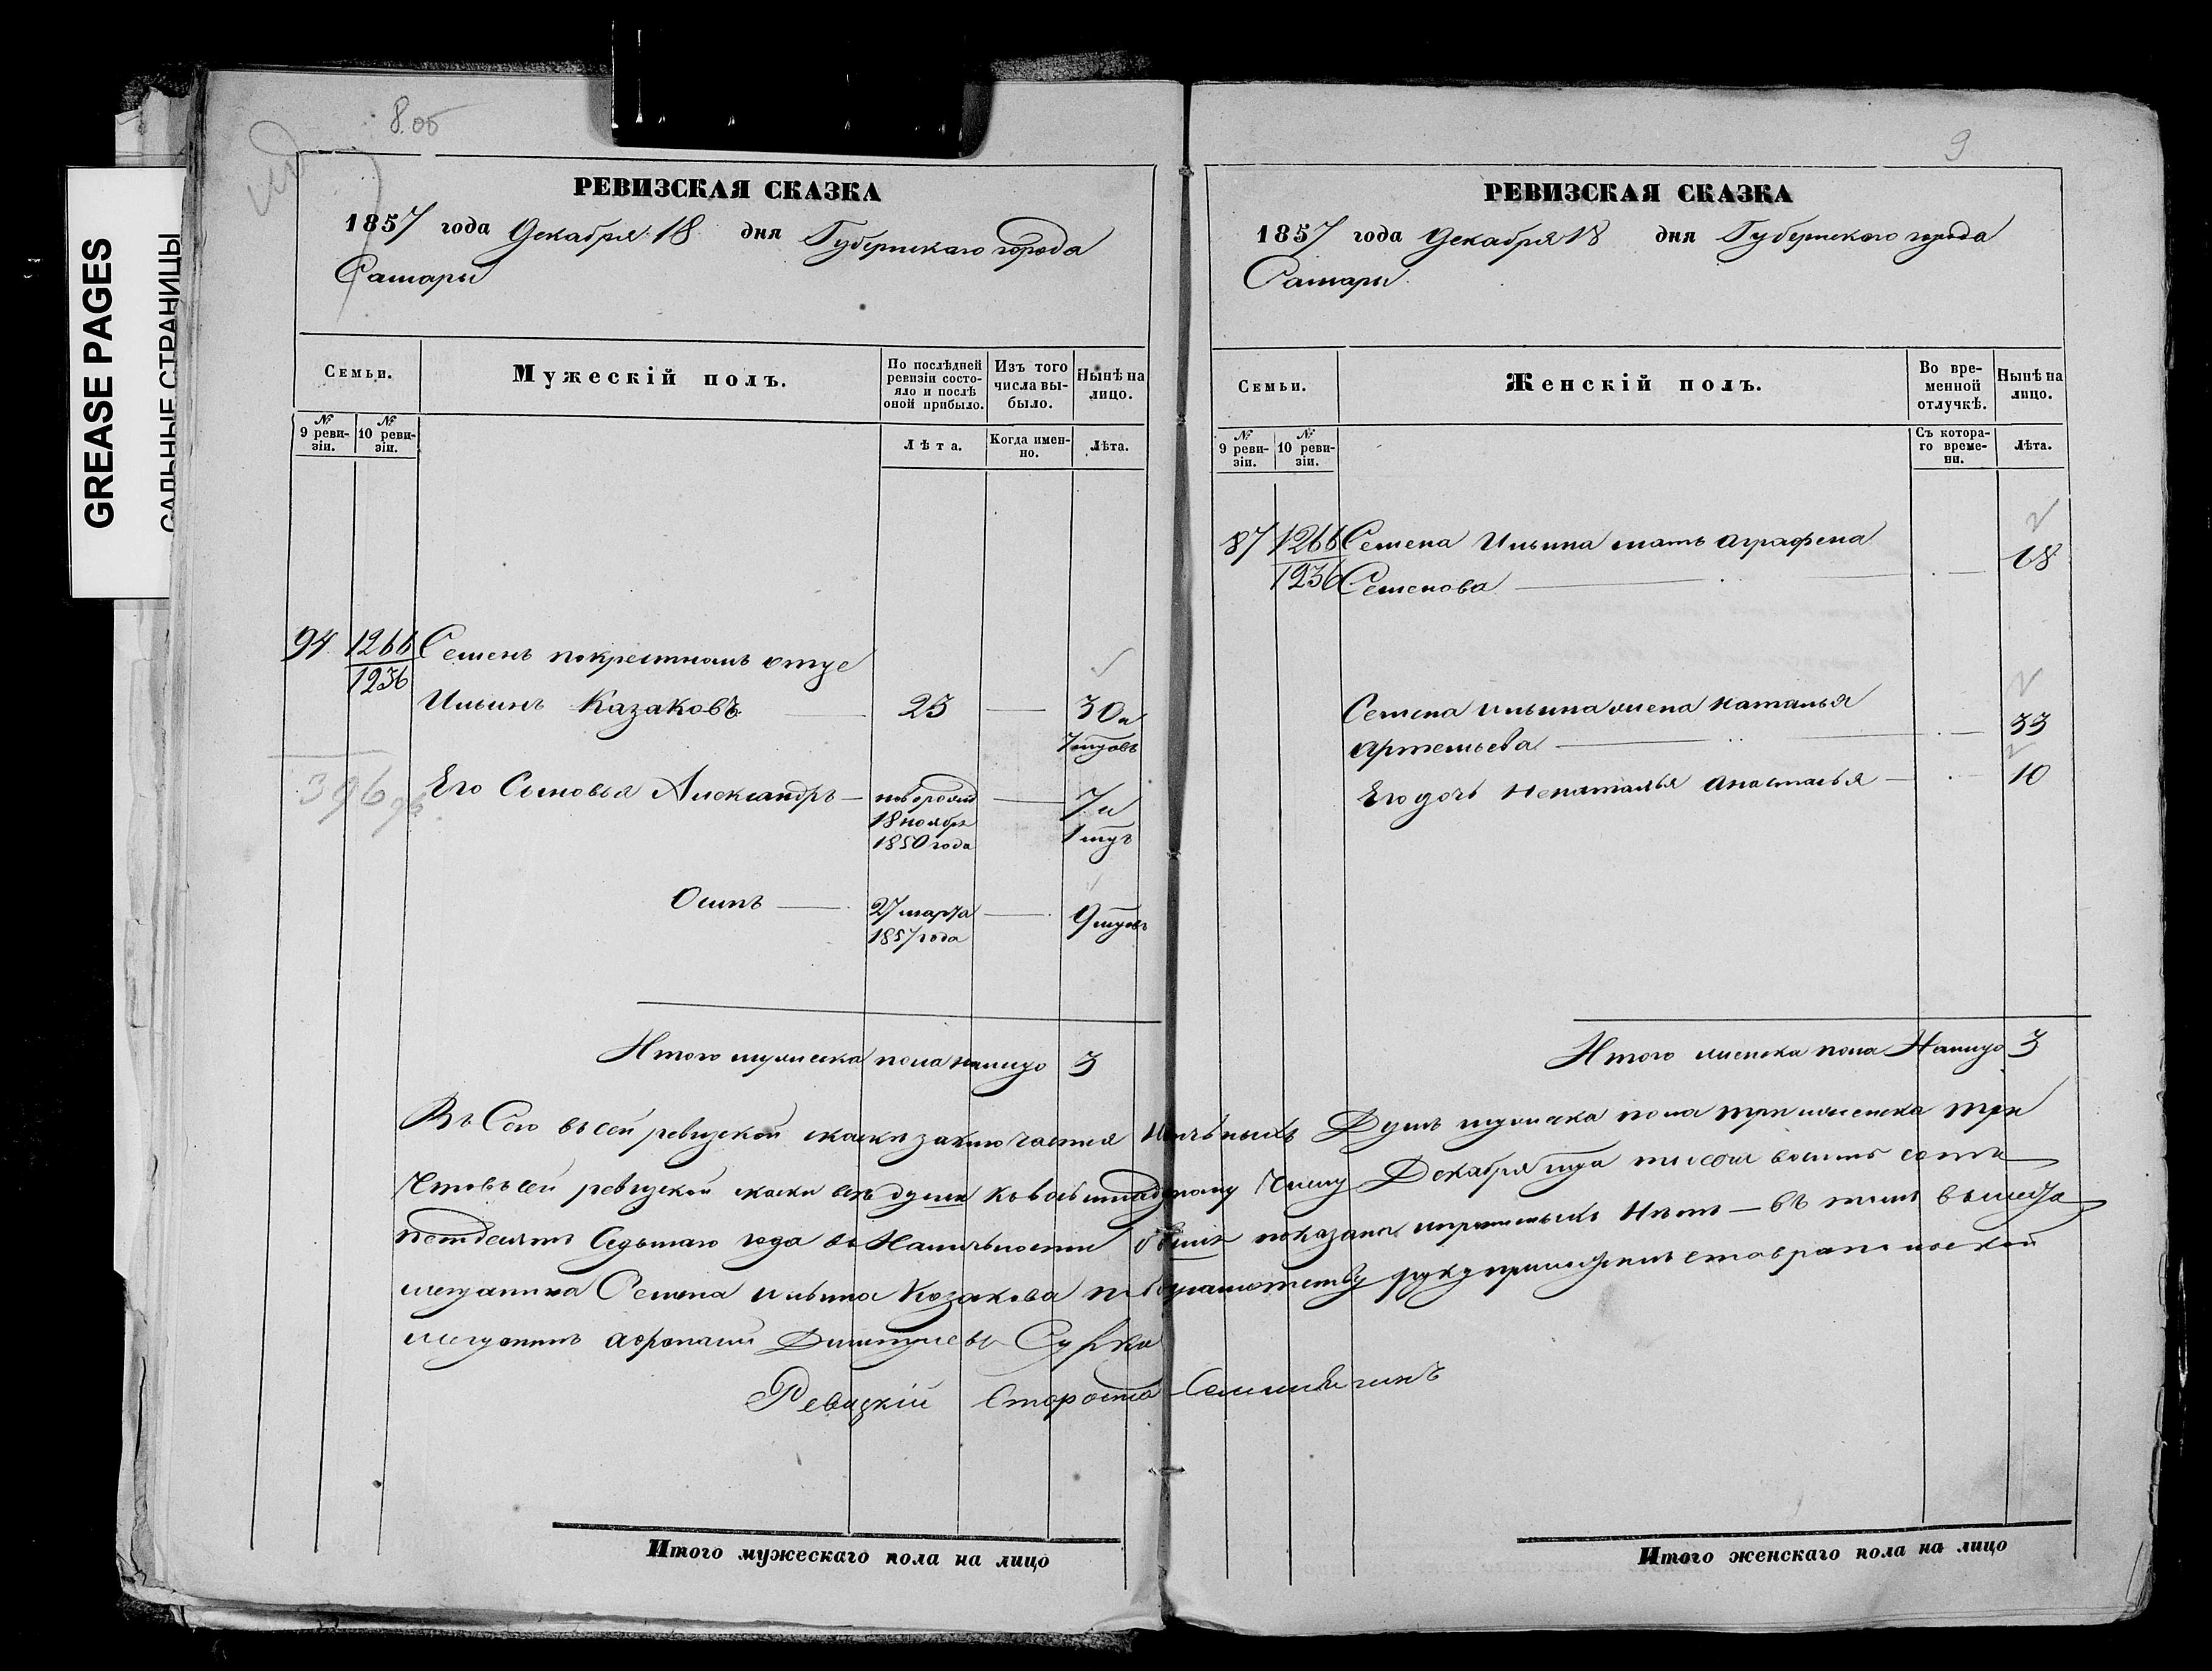 GREASE PAGES
САЛЬНЫЕ СТРАНИЦЫ
8.об
РЕВИЗСКАЯ СКАЗКА
1857 года Декабря 18 дня Губернскаго города
Самары
Семьи.
Мужескій полъ.
По послѣдней ревизіи состояло и послѣ оной прибыло.
Изъ того числа выбыло.
Нынѣ на лицо.
№ 9 ревизіи.
№ 10 ревизіи.
Лѣта.
Когда именно.
Лѣта.
94 1266 Семенъ покрестномъ отце
1236
Ильинъ Казаковъ 23 — 30 и
7 мцовъ
396
Его Сыновья Александръ — новорожд — 7 и
18 ноября 1 мцъ
1850 года
Осипъ — 27 марта — 9 мцовъ
1857 года
Итого мужеска пола налицо 3
9
РЕВИЗСКАЯ СКАЗКА
1857 года Декабря 18 дня Губернскаго города
Самары
Семьи.
Женскій полъ.
Во временной отлучкѣ.
Нынѣ на лицо.
№ 9 ревизіи.
№ 10 ревизіи.
Съ котораго времени.
Лѣта.
87 1266 Семена Ильина мать аграфена
1236 Семенова — 68
Семена ильина жена наталья
артемьева — 33
Его дочь анастасья — 10
Итого женска пола Налицо 3
Въ сей ревизской заключается Душъ мужеска пола три женска три
Что въ сей ревизской скаски все души къ Числу Декабря тысяча восемь сотъ
петдесять Седьмаго года в Наличьности показаны нѣтъ — въ томъ вместа
мещанина Семена ильина Козакова руку приложилъ ставропольской
мещанинъ
Староста
Итого мужескаго пола на лицо
Итого женскаго пола на лицо